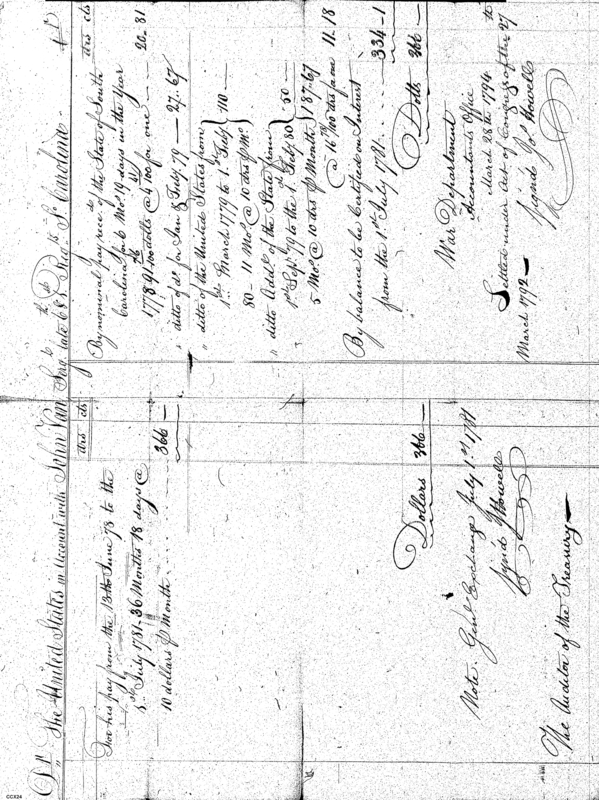 Dr. The United States in Account with John Van Serjt. late 6th & 1st Regt. So. Carolina. Cr.
drs cts
For his pay from the 13th June 78 to the
1st July 1781. 36 Months 18 days @
10 dollars P Month 366 —
Dollars 366 —
Note. Genl. Exchange July 1st 1781
Signed Jos. Howell
The Auditor of the Treasury —
drs cts
By nominal pay recd. of the State of South
Carolina for 6 Mos. 19 days in the Year
1778 91 dolls @ 4 100 for one 20..81
" ditto of do. for Jan & Feby. 79 — 27..67
" ditto of the United States from
1st March 1779 to 1st Feby.
80 - 11 Mos. @ 10 drs P Mo. 110 —
" ditto Addl. of the State from
1st Sept. 79 to the 1st Feby 80
5 Mos. @ 10 drs P Month 50 —
187..67
@ 16 100 drs for one 11..18
By balance to be Certified on Interest
from the 1st July 1781 334 - 1
Dolls 366 —
War Department
Accountants Office
March 28th 1794
Settled under Act of Congress of the 27
March 1792 —
Signed Jos. Howell
CCX24